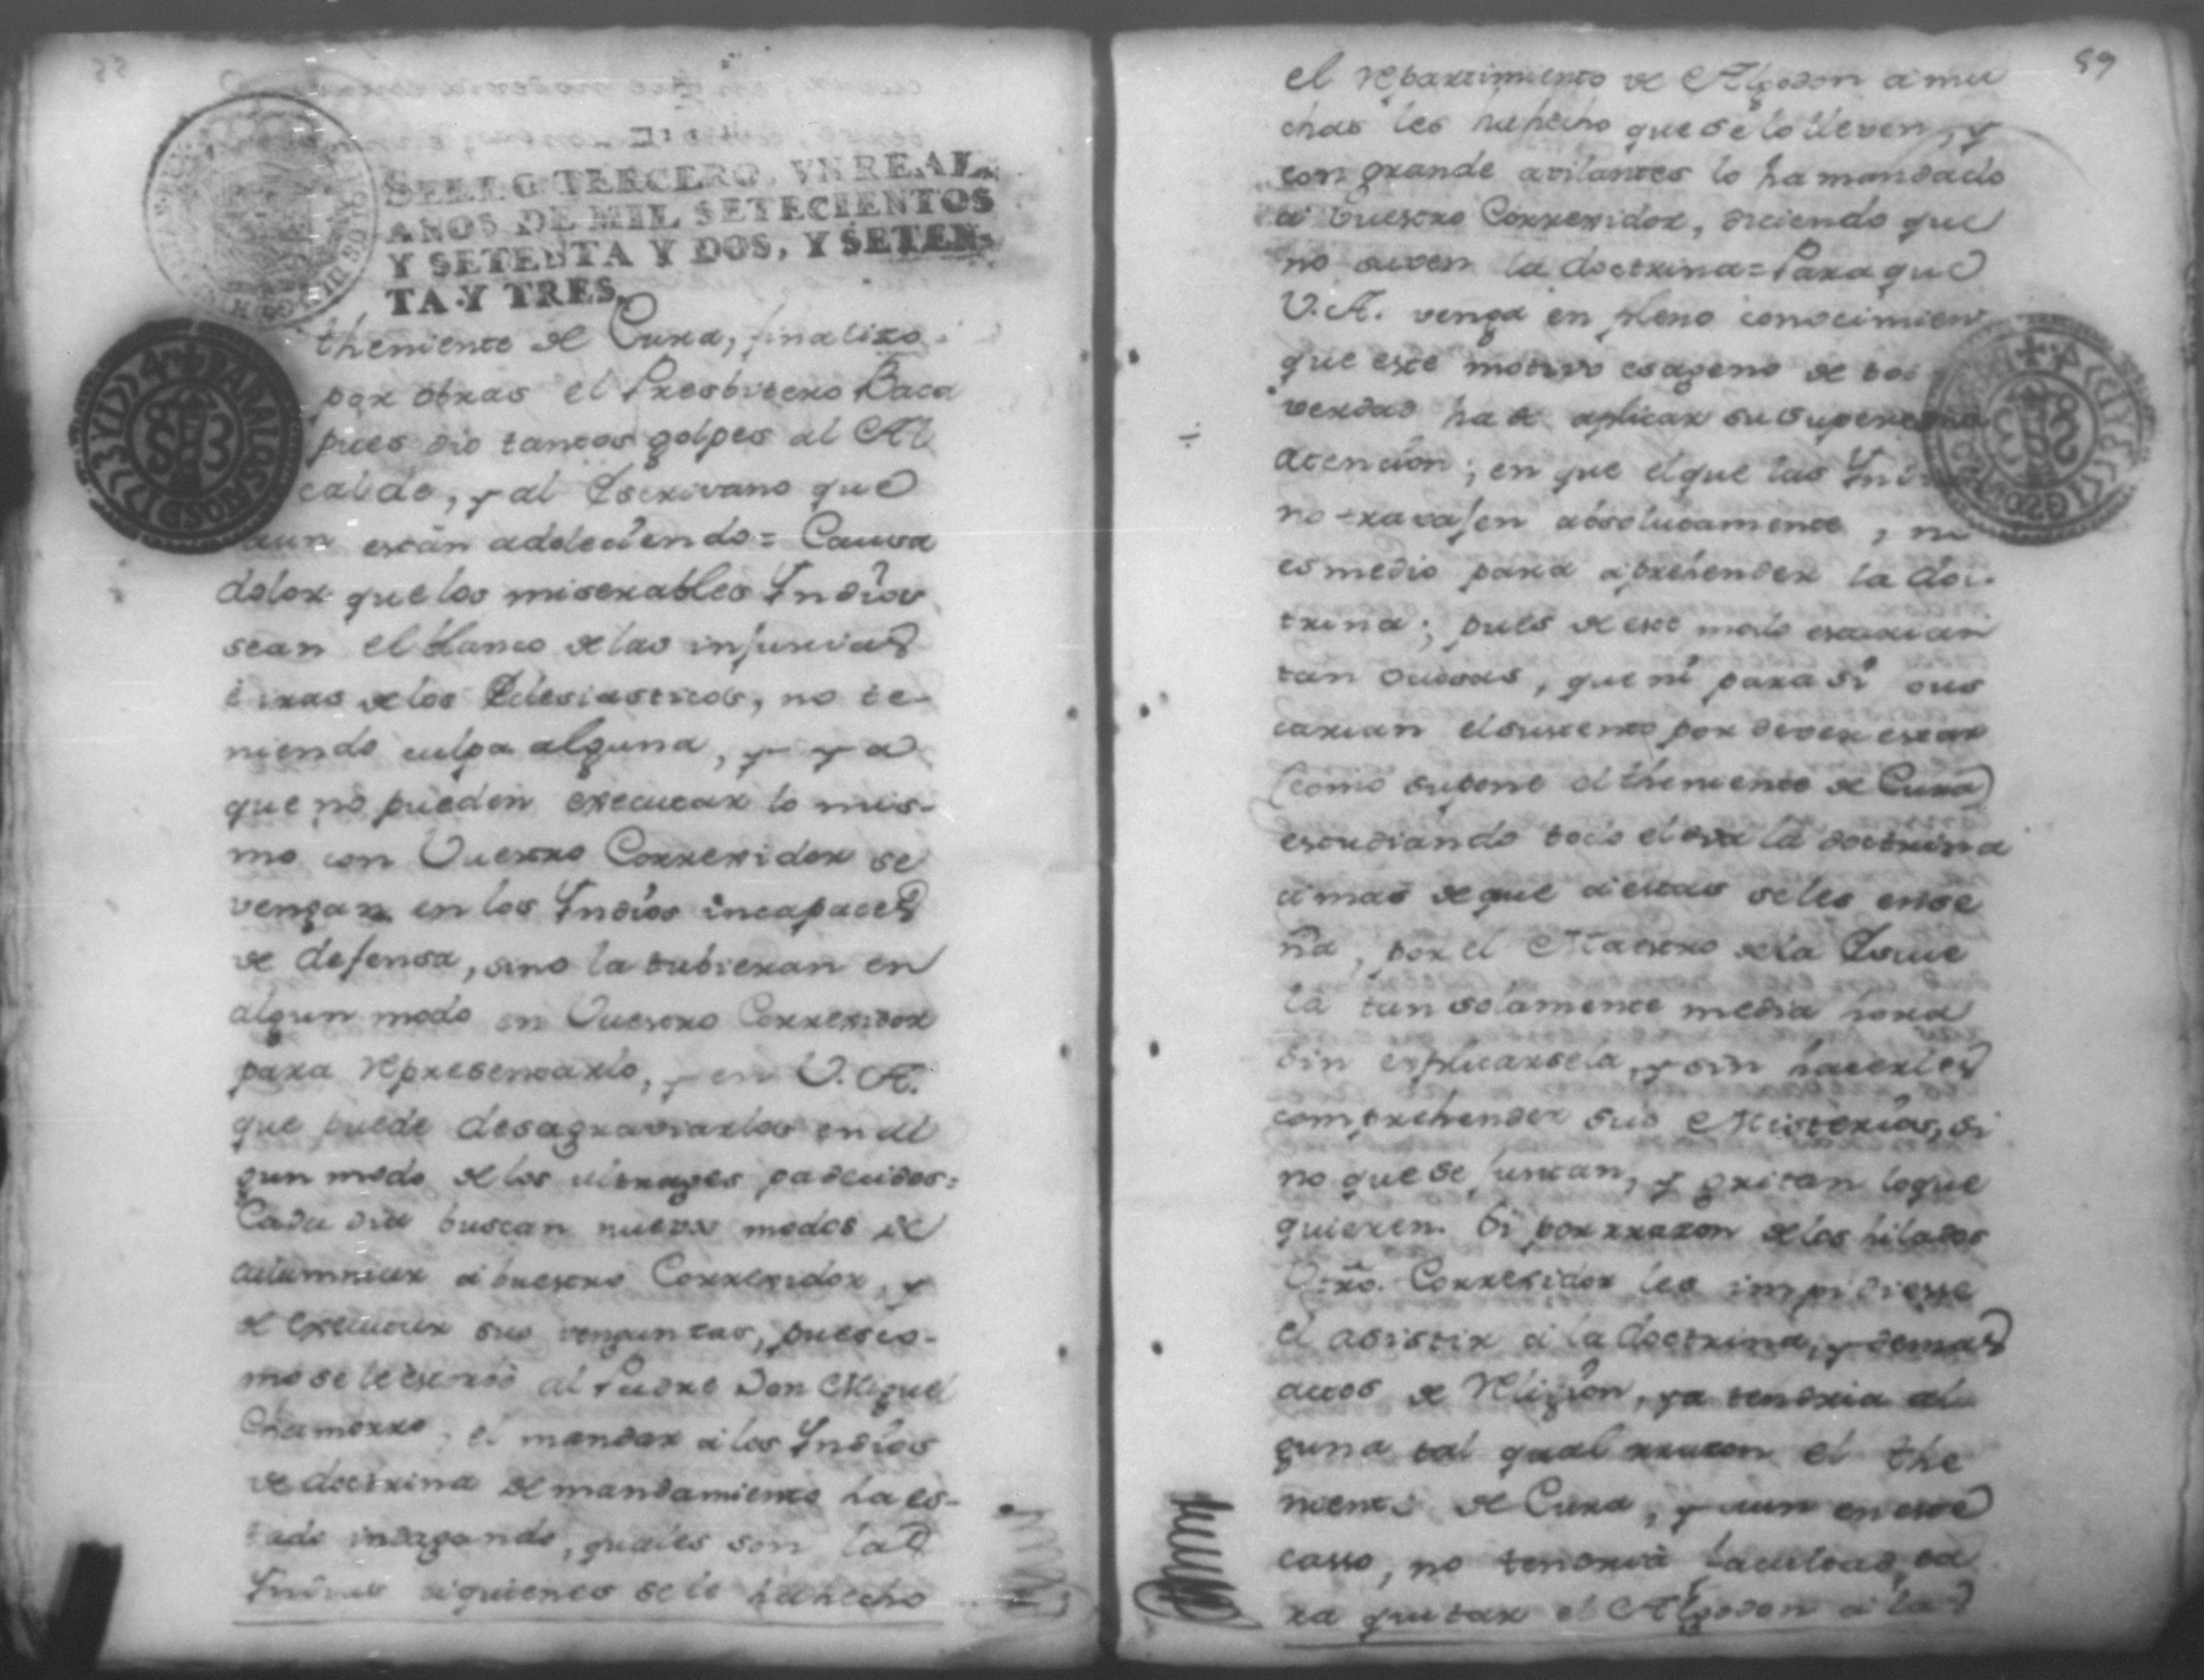 88
SELLO TERCERO, VN REAL,
AÑOS DE MIL SETECIENTOS
Y SETENTA Y DOS, Y SETEN-
TA Y TRES.
theniente de Cura, finalizo
por obras el Presbitero Baca
pues dio tantos golpes al Al
calde, y al Escrivano que
aun están adoleciendo = Causa
dolor que los miserables Indios
sean el blanco de las injurias
é iras de los Eclesiasticos, no te-
niendo culpa alguna, y ya
que no pueden executar lo mis-
mo con Vuestro Correxidor se
vengan en los Indios incapaces
de defensa, sino la tubieran en
algun modo en Vuestro Correxidor
para representarlo, y en V. A.
que puede desagraviarlos en al
gun modo de los ultrages padecidos =
Cada dia buscan nuevos modos de
calumniar á vuestro Correxidor, y
de executar sus venganzas, pues co-
mo se le estorbó al Padre Don Miguel
Chamorro, el mandar á los Indios
de doctrina de mandamiento ha es-
tado indagando, quales son las
Indias á quienes se le ha hecho
89
el repartimiento de Algodon á mu
chas les ha hecho que se lo lleven, y
con grande avilantes lo ha mandado
á Vuestro Correxidor, diciendo que
no saven la doctrina = Para que
V. A. venga en pleno conocimien
que este motivo es ageno de
verdad ha de aplicar su
atencion; en que el que las
no travajen absolutamente, ni
es medio para aprehender la doc-
trina; pues de este modo estarian
tan ociosas, que ni para si bus
carian el sustento por dever estar
(como supone el theniente de Cura)
estudiando todo el dia la doctrina
á mas de que á estas se les ense
ña, por el Maestro de la Escue
la tan solamente media hora
sin explicarsela, y sin hacerles
comprehender sus Misterios, si
no que se juntan, y gritan lo que
quieren. Si por rrazon de los hilados
Vtro. Correxidor les impidiesse
el asistir á la doctrina, y demas
actos de Religion, ya tendria al
guna tal qual rrazon el the
niente de Cura, y aun en este
casso, no tendria facultad pa
ra quitar el Algodon á las